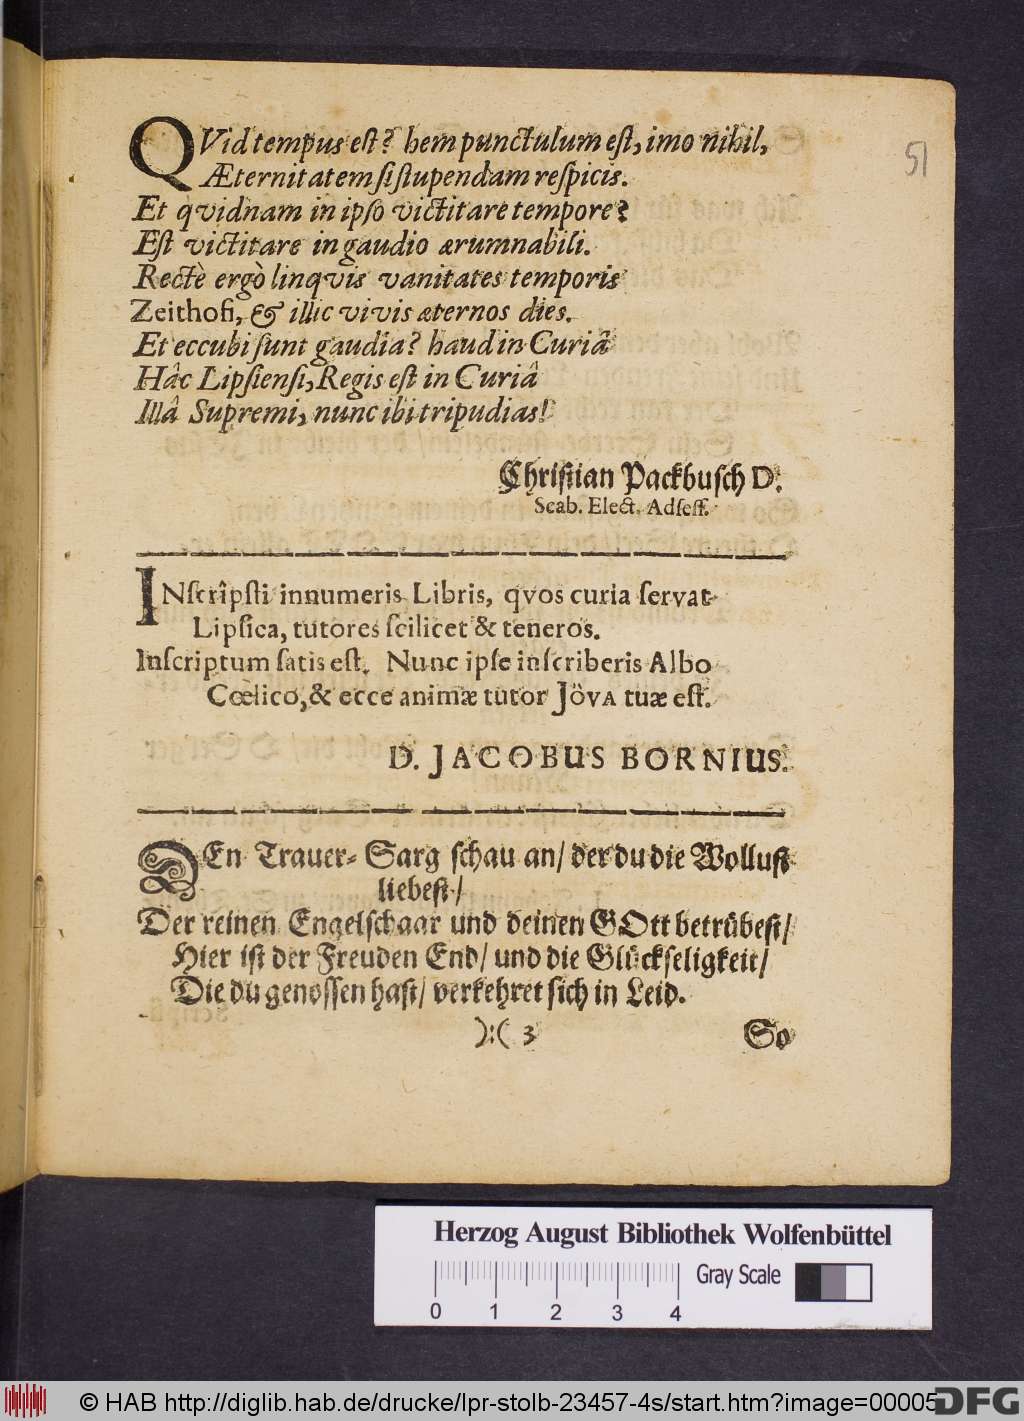 QVid tempus eſt? hem punctulum eſt, imo nihil,
Æternitatem ſi ſtupendam reſpicis.
Et qvidnam in ipſo victitare tempore?
Eſt victitare in gaudio ærumnabili.
Rectè ergò linqvis vanitates temporis
Zeithofi, & illic vivis æternos dies.
Et eccubi ſunt gaudia? haud in Curiâ
Hâc Lipſienſi, Regis eſt in Curiâ
Illâ Supremi, nunc ibi tripudias!
Chriſtian Packbuſch D.
Scab. Elect. Adſeſſ.
INſcrîpſti innumeris Libris, qvos curia ſervat
Lipſica, tutores ſcilicet & teneros.
Inſcriptum ſatis eſt. Nunc ipſe inſcriberis Albo
Cœlico, & ecce animæ tutor JövA tuæ eſt.
D. JACOBUS BORNIUS.
DEn Trauer-Sarg ſchau an/ der du die Wolluſt
liebeſt/
Der reinen Engelſchaar und deinen GOtt betrübeſt/
Hier iſt der Freuden End/ und die Glückſeligkeit/
Die du genoſſen haſt/ verkehret ſich in Leid.
):( 3 So
51
Herzog August Bibliothek Wolfenbüttel
Gray Scale
0 1 2 3 4
© HAB http://diglib.hab.de/drucke/lpr-stolb-23457-4s/start.htm?image=00005
DFG